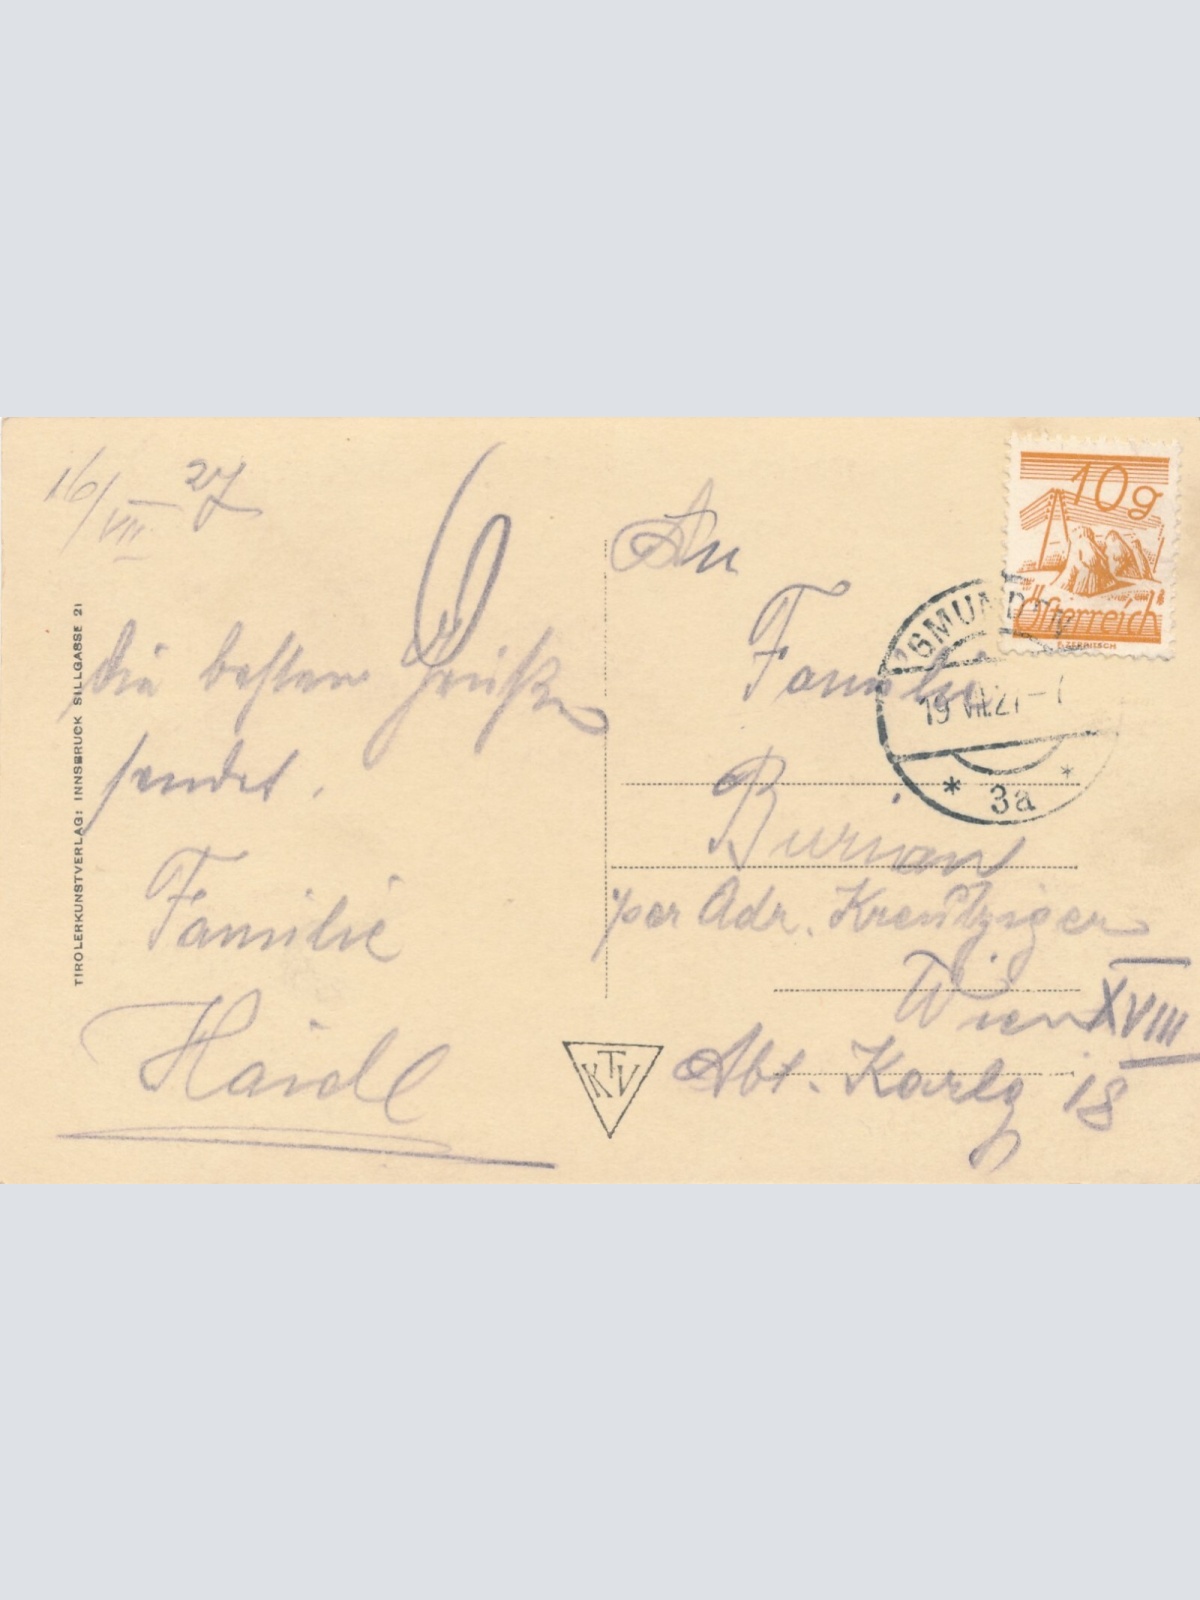 16/VII 27
Die besten Grüße
sendet.
Familie
Haidl
TIROLERKUNSTVERLAG: INNSBRUCK SILLGASSE 21
KTV
10g
Österreich
GMUNDEN
19 VII.27
* 3a *
An
Familie
Burian
per Adr. Kreutziger
Wien XVIII
Abt. Karlg 18